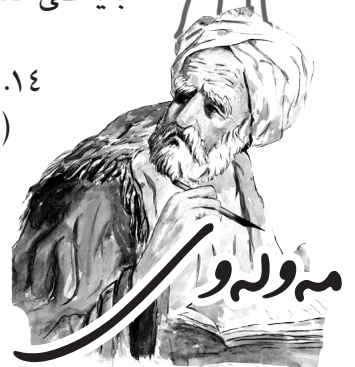 ١٤.
(
مەولەوی